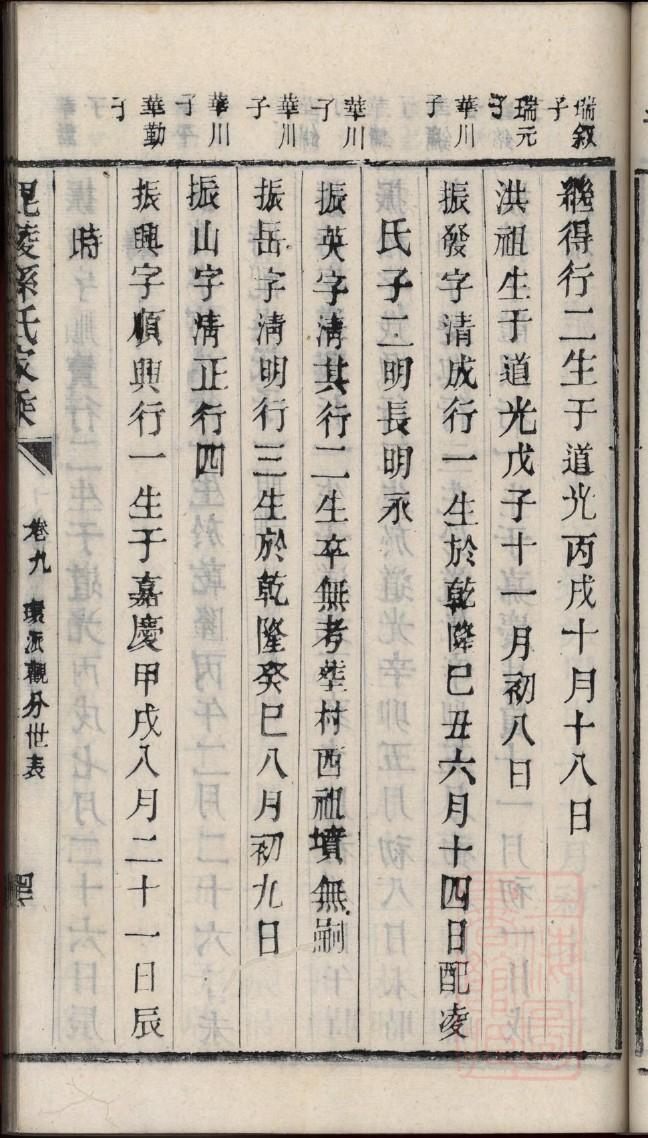 瑞叙子
繼得行二生于道光丙戌十月十八日
瑞元子
洪祖生于道光戊子十一月初八日
華川子
振發字清成行一生於乾隆已丑六月十四日配凌
氏子二明長明永
華川子
振英字清其行二生卒無考塟村西祖墳無嗣
華川子
振岳字清明行三生於乾隆癸巳八月初九日
華川子
振山字清正行四
華勤子
振興字順興行一生于嘉慶甲戌八月二十一日辰
時
毘陵孫氏家乘
卷九
環派觀分世表